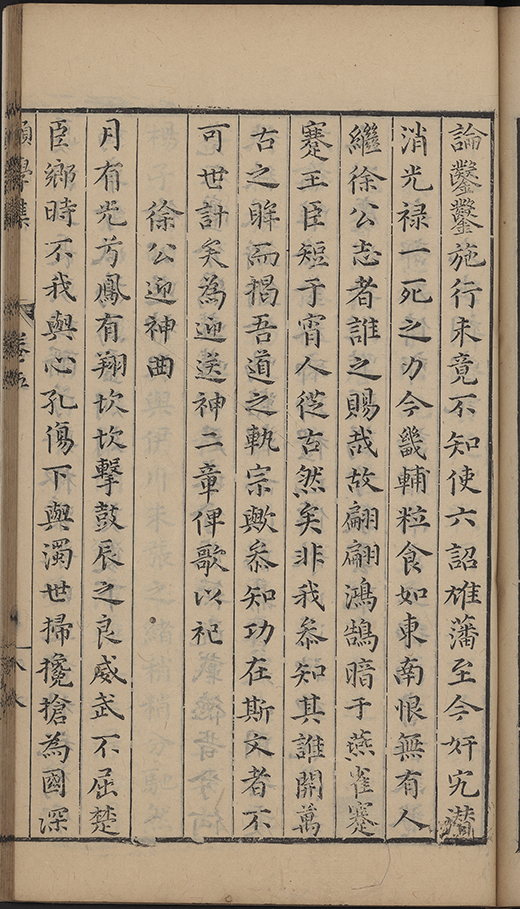 論鑿鑿施行未竟不知使六詔雄藩至今奸宄潛
消光禄一死之力今畿輔粒食如東南恨無有人
繼徐公志者誰之賜哉故翩翩鴻鵠暗于燕雀蹇
蹇王臣短于宵人從古然矣非我叅知其誰開萬
古之眸而揭吾道之軌宗歟叅知功在斯文者不
可世計矣為迎送神二章俾歌以祀
徐公迎神曲
月有光兮鳳有翔坎坎擊鼓辰之良威武不屈楚
臣鄉時不我與心孔傷下與濁世掃攙搶為國深
願學集 卷五